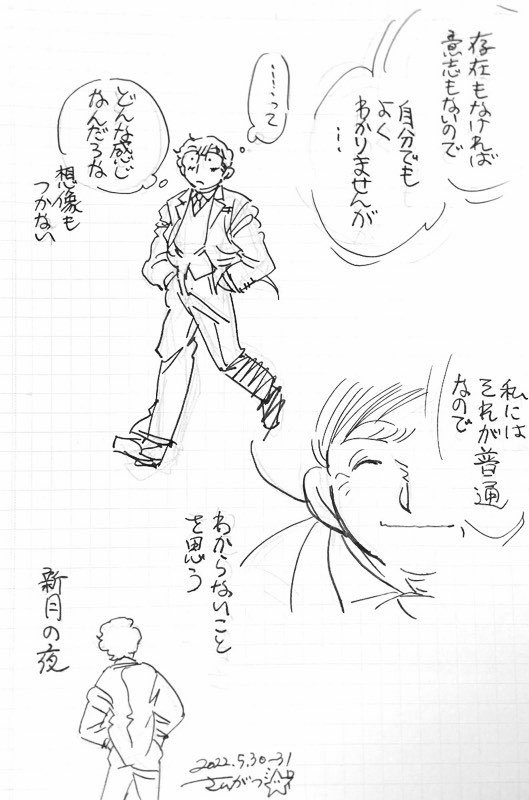 存在もなければ
意志もないので
自分でも
よく
わかりませんが
…
私には
それが普通
なので
……って
どんな感じ
なんだろな
想像も
つかない
わからないこと
を思う
新月の夜
2022.5.30-31
さんがつ